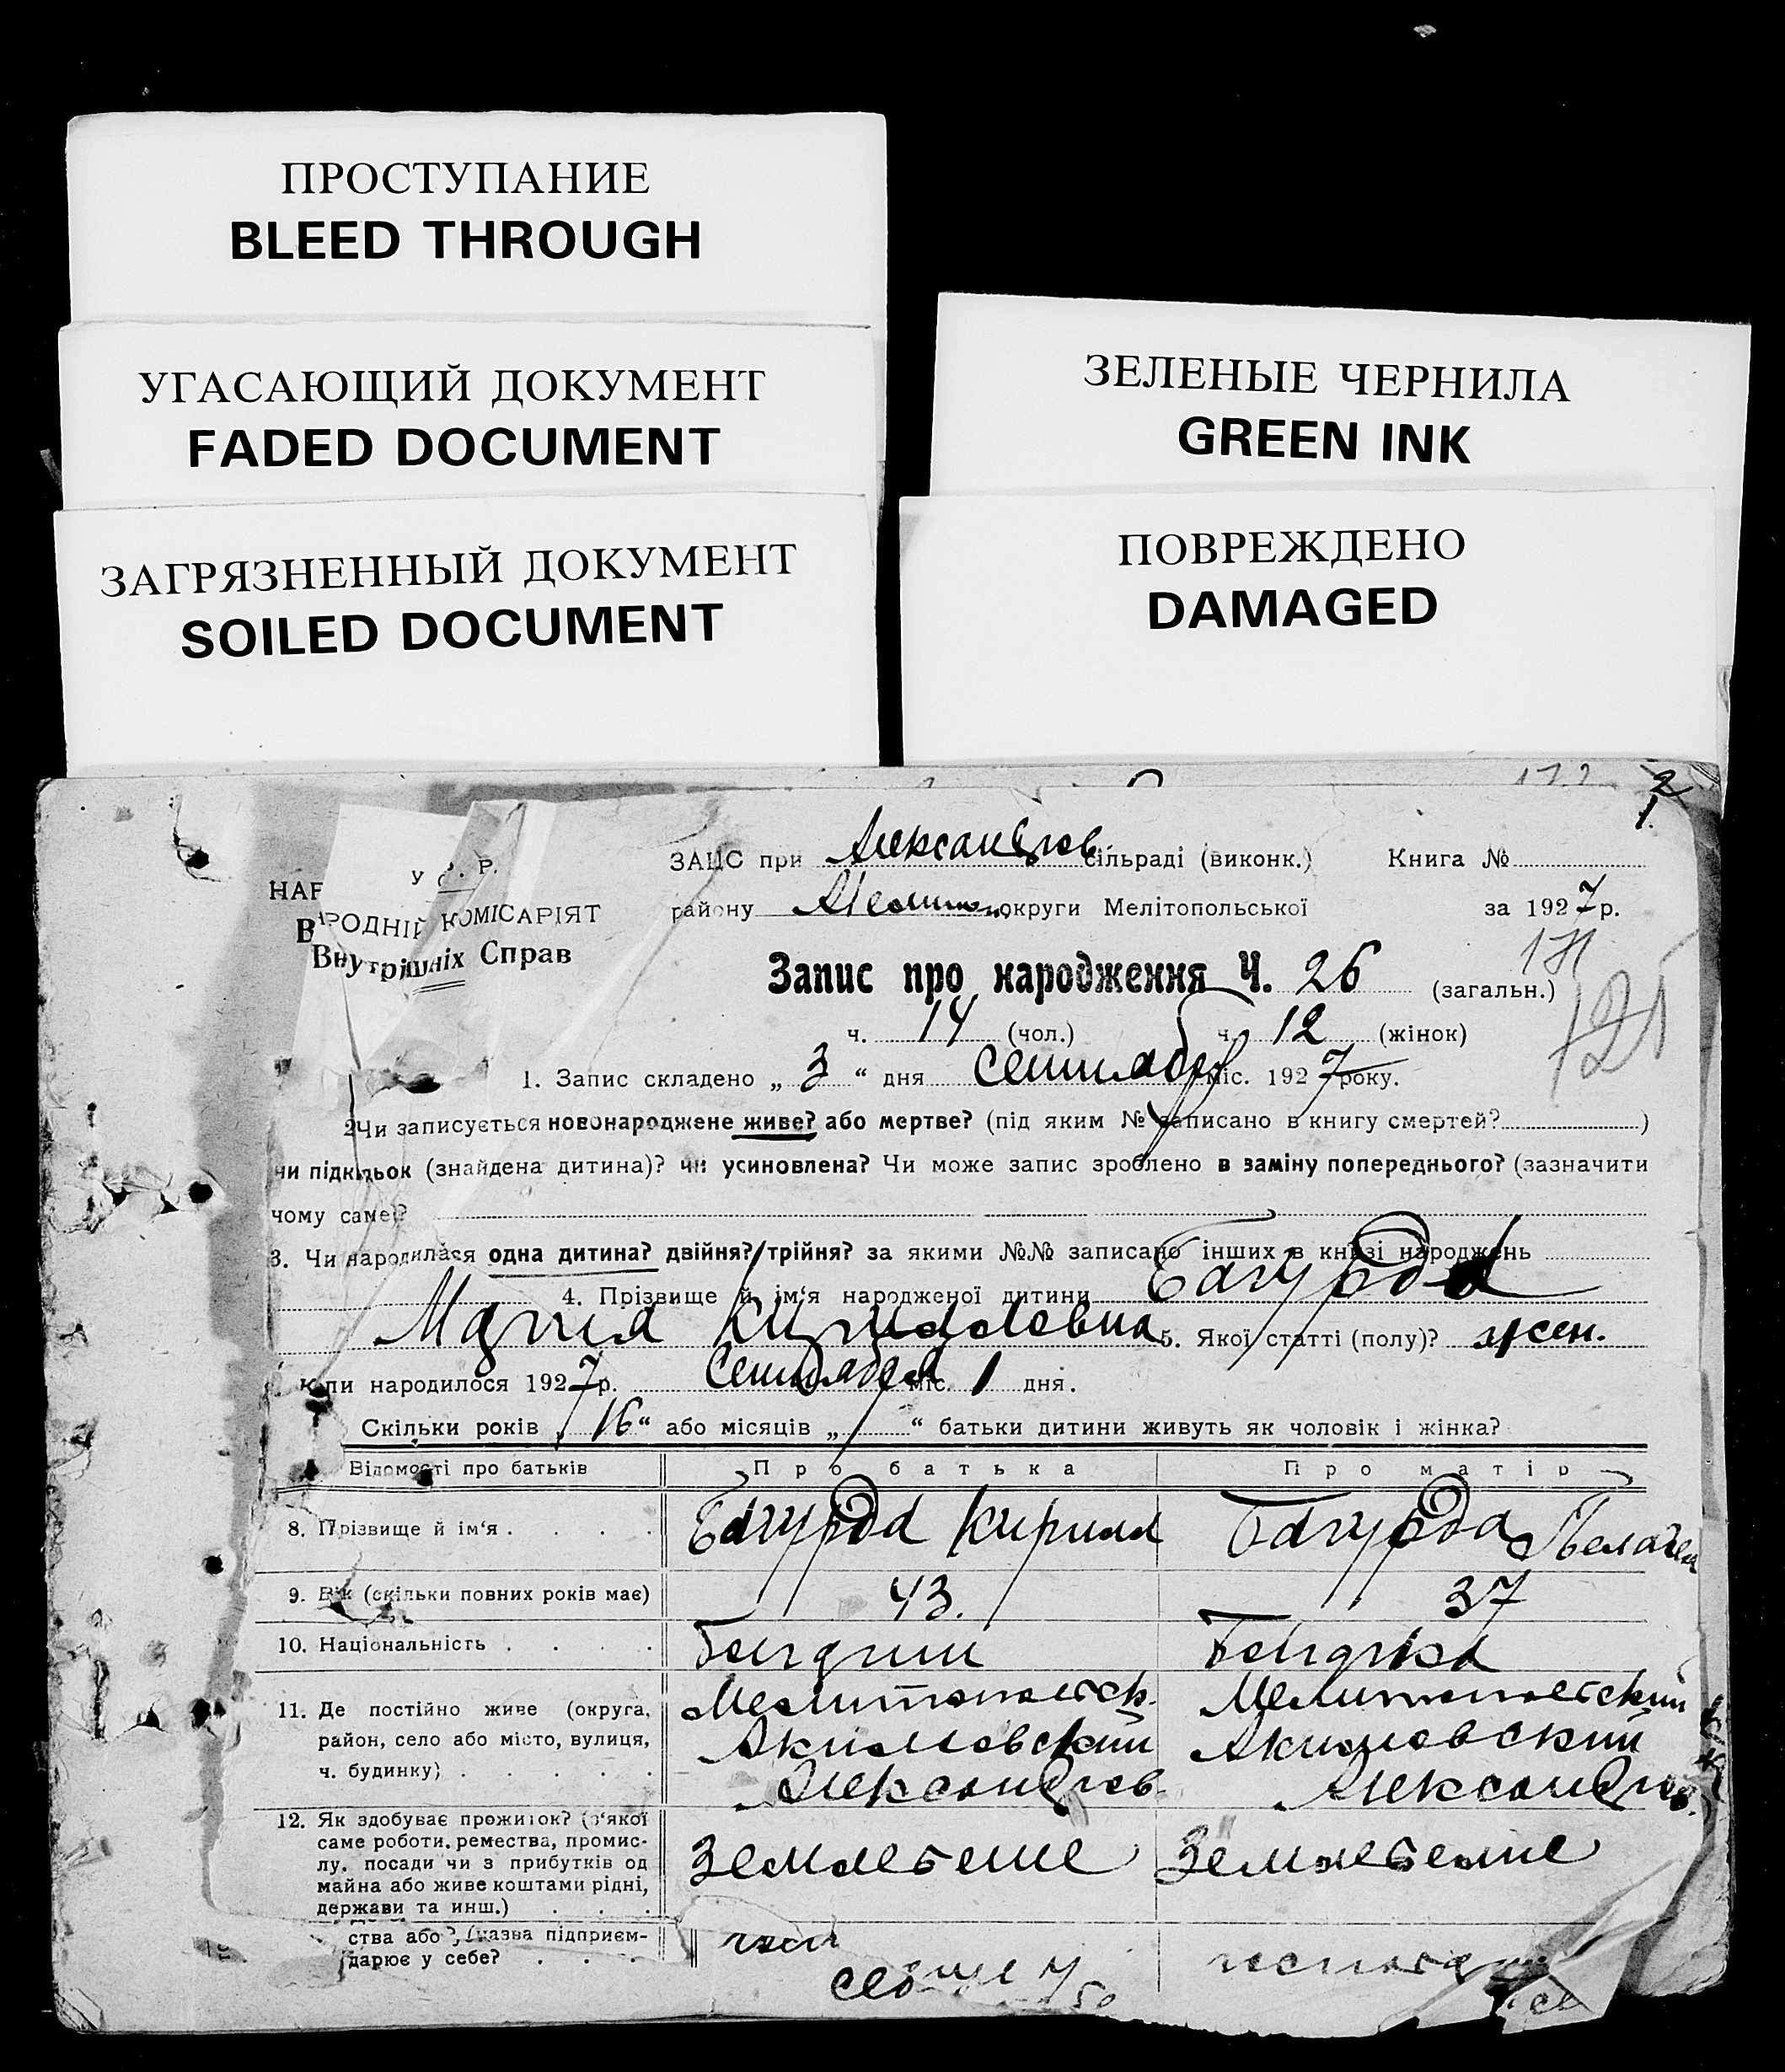 ПРОСТУПАНИЕ
BLEED THROUGH
УГАСАЮЩИЙ ДОКУМЕНТ
FADED DOCUMENT
ЗЕЛЕНЫЕ ЧЕРНИЛА
GREEN INK
ЗАГРЯЗНЕННЫЙ ДОКУМЕНТ
SOILED DOCUMENT
ПОВРЕЖДЕНО
DAMAGED
2
1.
У Р. Р.
НАРОДНІЙ КОМІСАРІЯТ
Внутрішніх Справ
ЗАЦС при Александров сільраді (виконк.) Книга №
району округи Мелітопольської за 1927 р.
Запис про народження Ч. 26 (загальн.)
121
ч. 14 (чол.) ч. 12 (жінок)
1. Запис складено „ 3 “ дня Сентября міс. 1927 року.
2 Чи записується новонароджене живе? або мертве? (під яким № записано в книгу смертей? )
чи підкідьок (знайдена дитина)? чи усиновлена? Чи може запис зроблено в заміну попереднього? (зазначити
чому саме)?
3. Чи народилася одна дитина? двійня? трійня? за якими №№ записано інших в книзі народжень
4. Прізвище й ім‘я народженої дитини Багурда
Мария Кирилловна 5. Якої статті (полу)? жен.
Коли народилося 1927 р. Сентября міс. 1 дня.
Скільки років „ 16 “ або місяців „ “ батьки дитини живуть як чоловік і жінка?
Відомості про батьків Про батька Про матір
8. Прізвище й ім‘я . . . . Багурда Кирилл Багурда Пелагея
9. Вік (скільки повних років має) 43. 37
10. Національність . . . . Болгарин Болгарка
11. Де постійно живе (округа, Мелитопольск. Мелитопольский
район, село або місто, вулиця, Акимовский Акимовский
ч. будинку) . . . . . Александров Александров.
12. Як здобуває прожиток? (з‘якої
саме роботи, ремества, промис-
лу, посади чи з прибутків од Земледелие Земледелие
майна або живе коштами рідні,
держави та инш.) . . .
ства або ? (назва підприєм-
дарює у себе? . . .